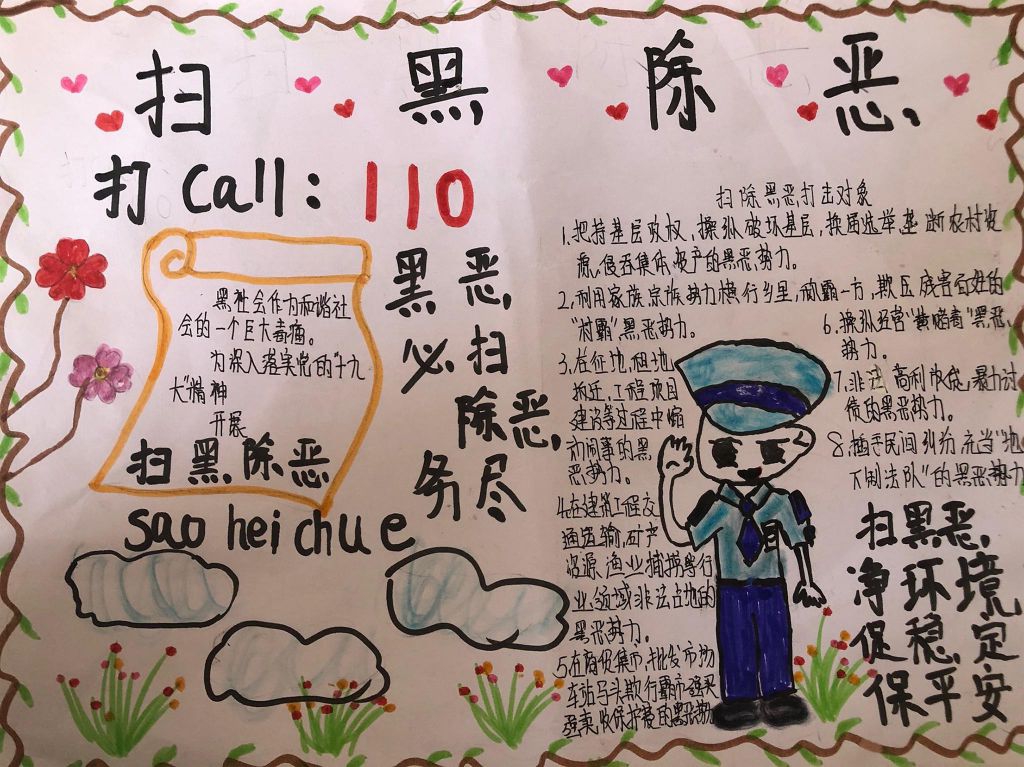 扫黑除恶
打 Call：110
黑社会作为和谐社
会的一个巨大毒瘤。
为深入落实党的"十九
大"精神
开展
扫黑除恶
sao hei chu e
黑恶
必扫
除恶
务尽
扫除黑恶打击对象
1.把持基层政权，操纵破坏基层，换届选举，垄断农村资
源，侵吞集体资产的黑恶势力。
2.利用家族宗族势力横行乡里，称霸一方，欺压残害百姓的
"村霸"黑恶势力。
3.在征地，租地
拆迁，工程项目
建设等过程中煽
动闹事的黑
恶势力。
4.在建筑工程交
通运输，矿产
资源渔业捕捞等行
业，领域非法占地的
黑恶势力。
5.在商贸集市，批发市场
车站马头欺行霸市强买
强卖，收保护费的黑恶势力
6.操纵经营"黄赌毒"黑恶
势力。
7.非法高利放贷，暴力讨
债的黑恶势力。
8.插手民间纠纷充当"地
下制法队"的黑恶势力
扫黑恶，
净环境
促稳定
保平安